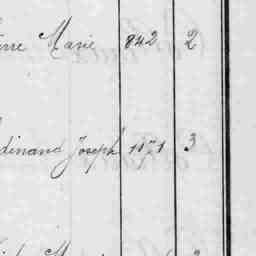 erre Marie 842 2
dinand Joseph 1171 3